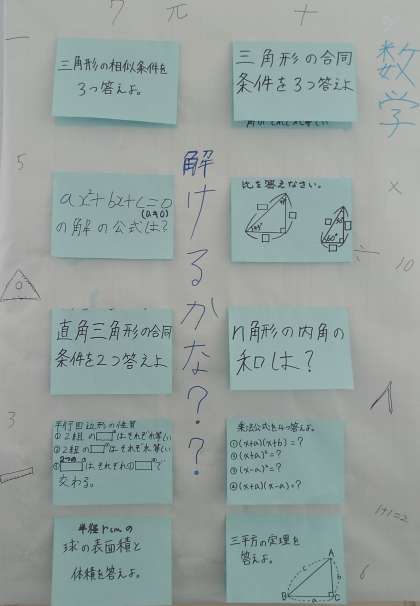 数学
解けるかな??
三角形の相似条件を
3つ答えよ。
三角形の合同
条件を3つ答えよ
ax²+bx+c=0
(a≠0)
の解の公式は?
比を答えなさい。
直角三角形の合同
条件を2つ答えよ
n角形の内角の
和は?
平行四辺形の性質
①2組の□はそれぞれ等しい
②2組の□はそれぞれ等しい
③□はそれぞれの□で
交わる。
乗法公式を4つ答えよ。
①(x+a)(x+b)=?
②(x+a)²=?
③(x-a)²=?
④(x+a)(x-a)=?
半径rcmの
球の表面積と
体積を答えよ。
三平方の定理を
答えよ。
A
c
b
B
a
C
7
π
+
5
×
÷
10
3
1+1=2
6